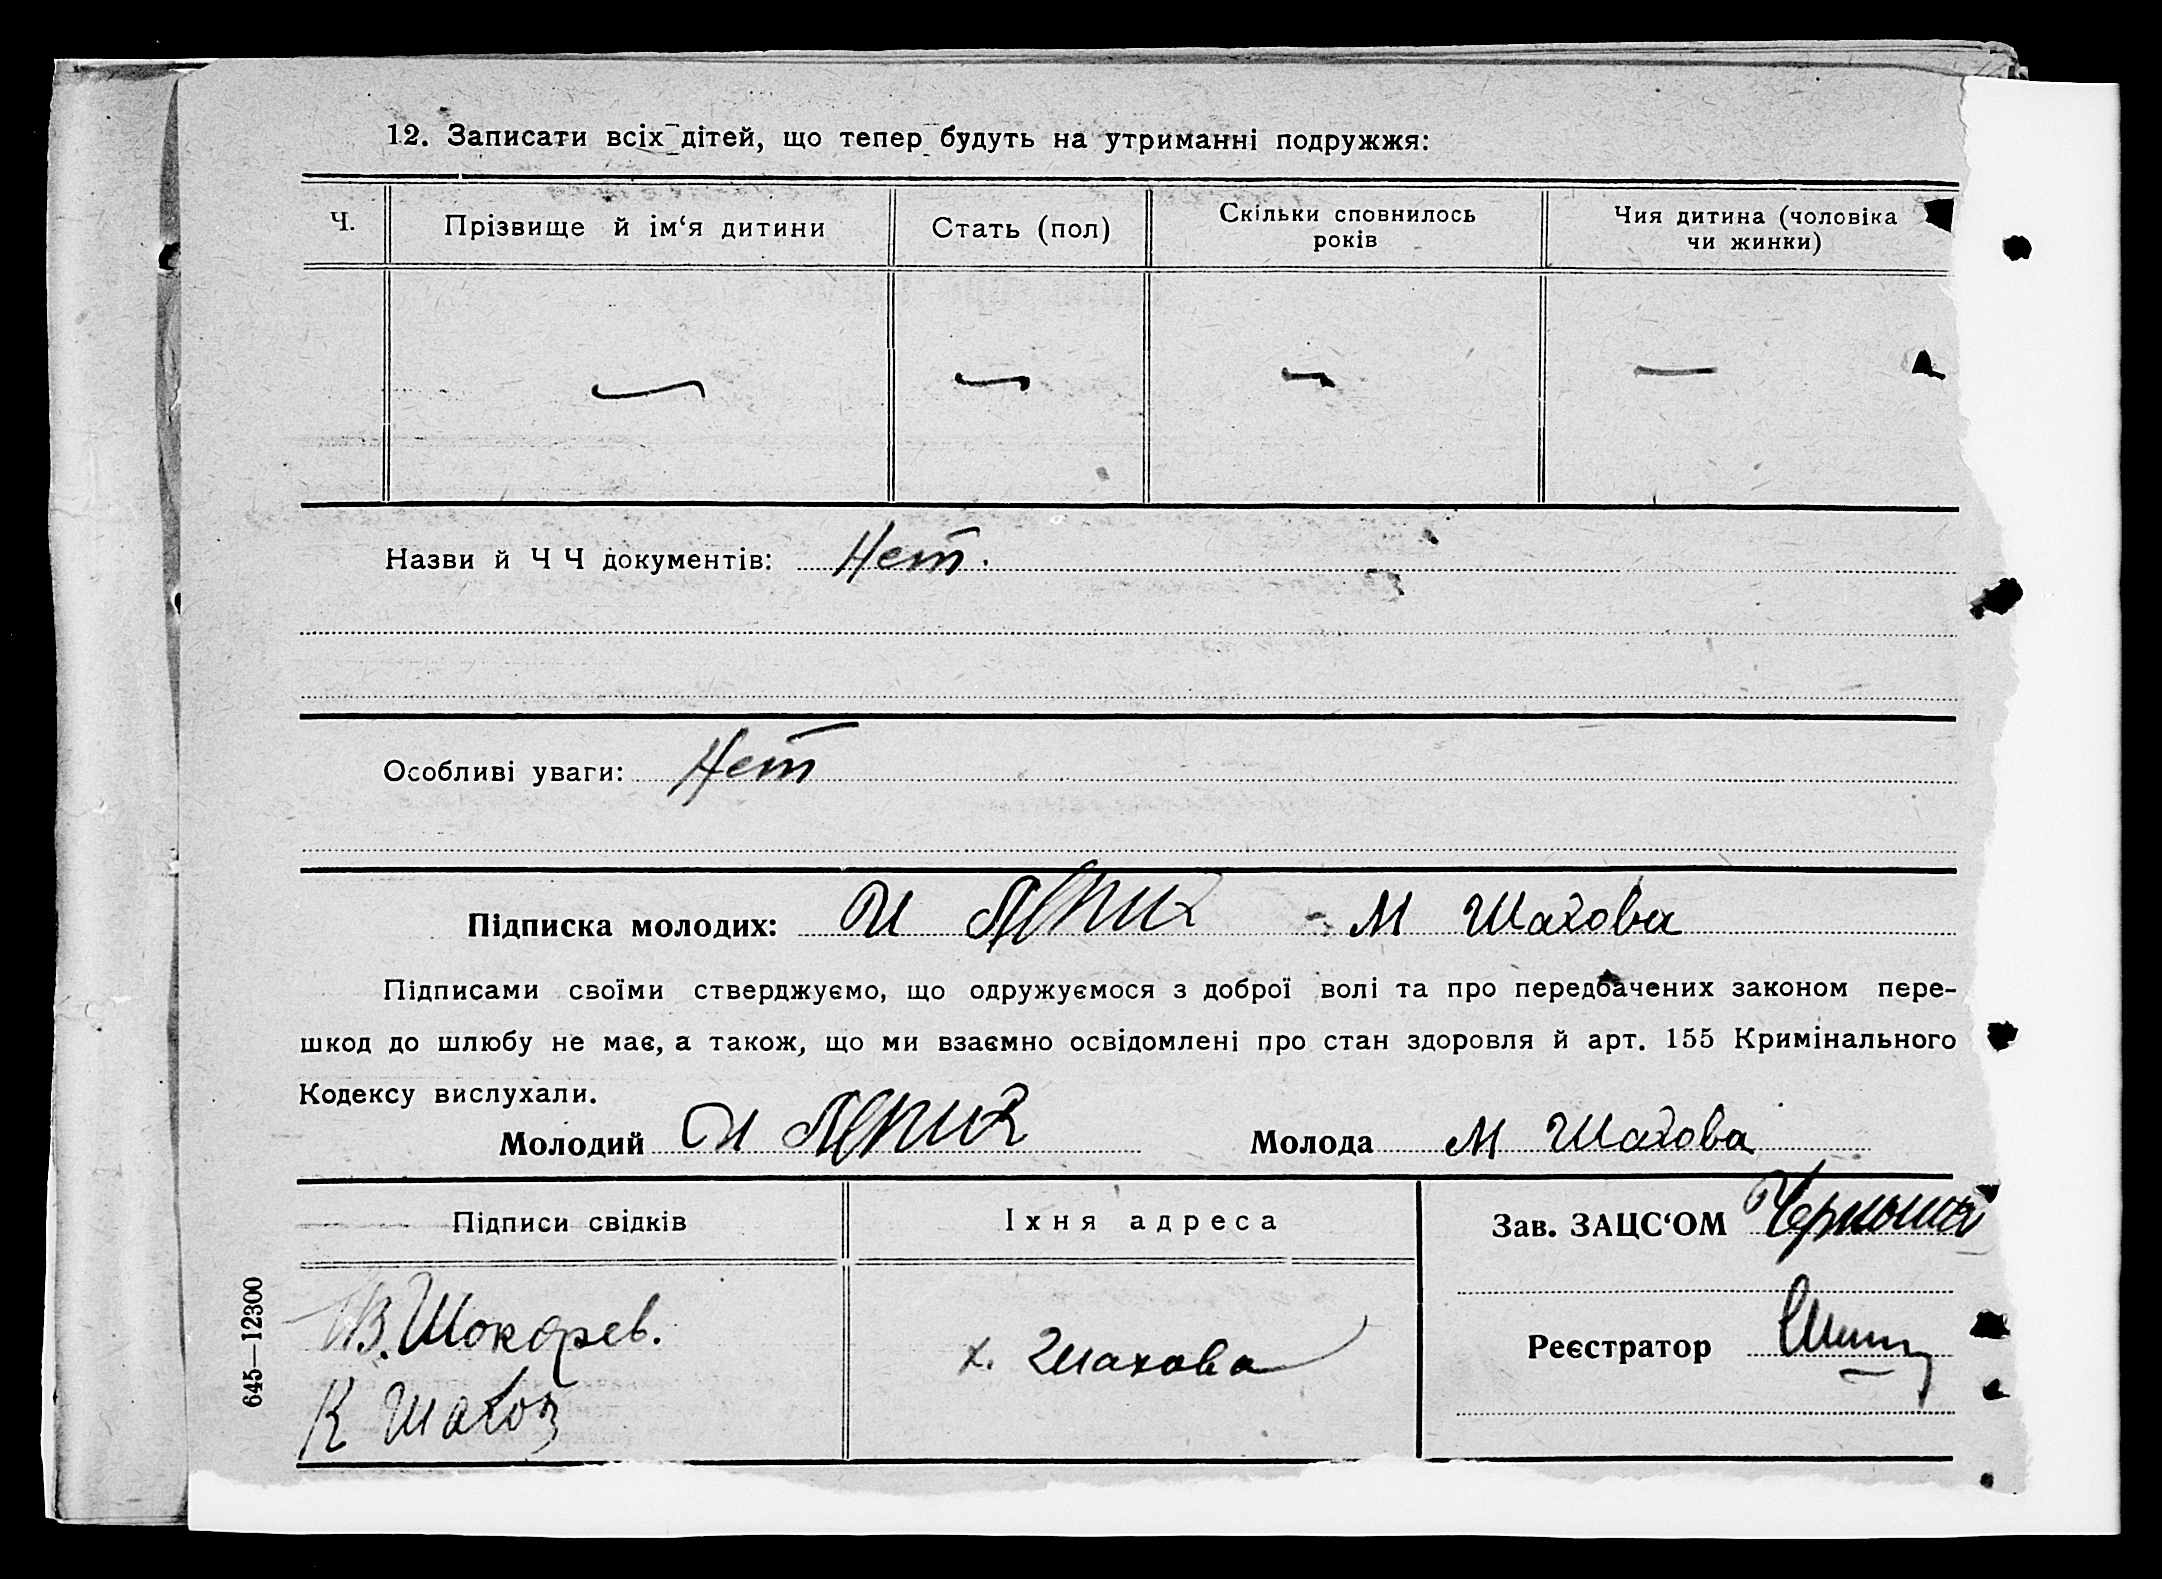 12. Записати всіх дітей, що тепер будуть на утриманні подружжя:
Ч.
Прізвище й ім‘я дитини
Стать (пол)
Скільки сповнилось
років
Чия дитина (чоловіка
чи жинки)
Назви й Ч Ч документів: Нет.
Особливі уваги: Нет
Підписка молодих: И М Шахова
Підписами своїми стверджуємо, що одружуємося з доброї волі та про передбачених законом пере-
шкод до шлюбу не має, а також, що ми взаємно освідомлені про стан здоровля й арт. 155 Кримінального
Кодексу вислухали.
Молодий И Молода М Шахова
Підписи свідків
Їхня адреса
Зав. ЗАЦС‘ОМ
В. Шокарев.
К Шахов
х. Шахова
Реєстратор
645—12300